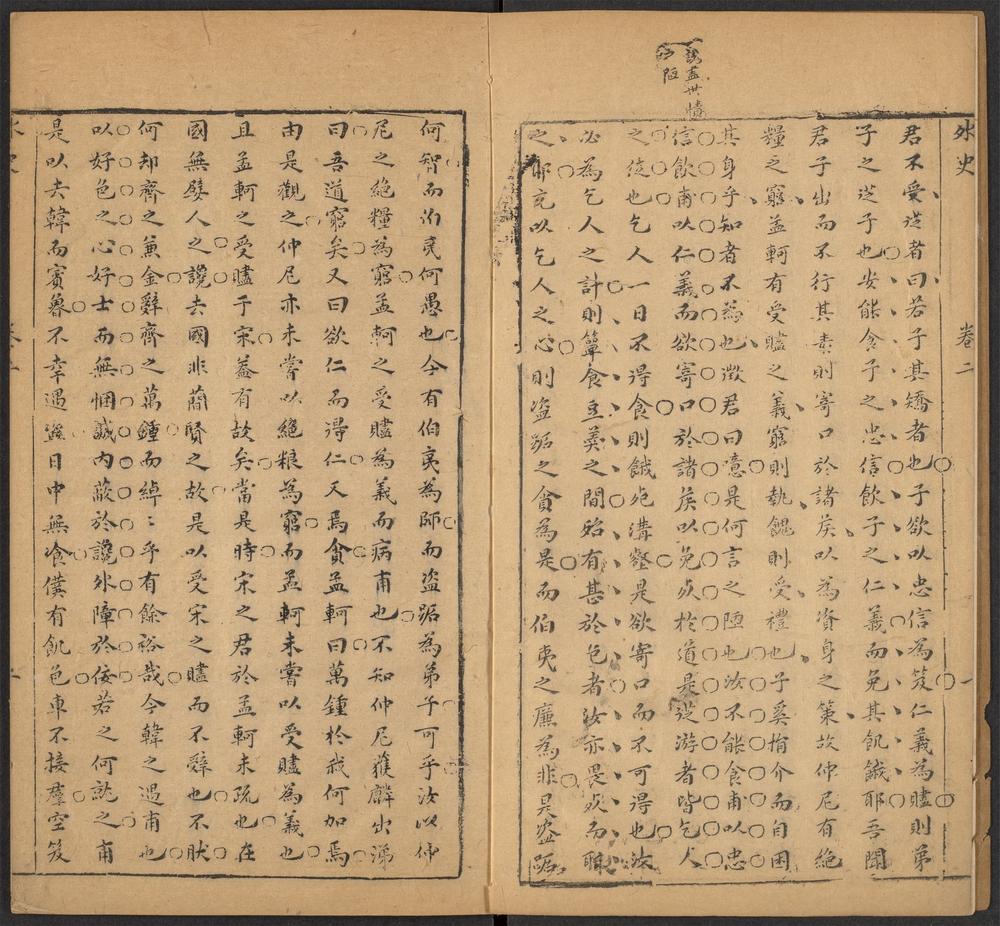 外史 卷二 一
君不受從者曰若子其矯者也子欲以忠信為笈仁義為贐則弟
子之從子也安能食子之忠信飲子之仁義而免其飢餓耶吾聞
君子出而不行其素則寄口於諸矦以為資身之策故仲尼有絕
糧之窮孟軻有受贐之義窮則執餽則受禮也子奚揹介而自困
其身乎知者不為也徵君曰噫是何言之陋也汝不能食甫以忠
信飲甫以仁義而欲寄口於諸矦以免灾於道是從游者皆乞人
之徒也乞人一日不得食則餓死溝壑是欲寄口而不可得也汝
必為乞人之計則簞食豆羹之間始有甚於色者汝亦畏灾而
之耶充以乞人之心則盜跖之貪為是而伯夷之廉為非是盜跖
何智而伯夷何愚也仝有伯夷為師而盜跖為弟子可乎汝以仲
尼之絕糧為窮孟軻之受贐為義而病甫也不知仲尼獲麟出涕
曰吾道窮矣又曰欲仁而得仁又焉貪孟軻曰萬鍾於我何加焉
由是觀之仲尼亦未嘗以絕粮為窮而孟軻未嘗以受贐為義也
且孟軻之受贐于宋葢有故矣當是時宋之君於孟軻未疏也在
國無嬖人之讒去國非蕳賢之故是以受宋之贐而不辤也不肰
何却齊之兼金辤齊之萬鍾而綽〻乎有餘裕哉今韓之遇甫也
以好色之心好士而無悃誠內蔽於讒外障於佞若之何就之甫
是以去韓而賓魯不幸遇盜日中無飡僕有飢色車不接羣空笈
誘盖世
陋